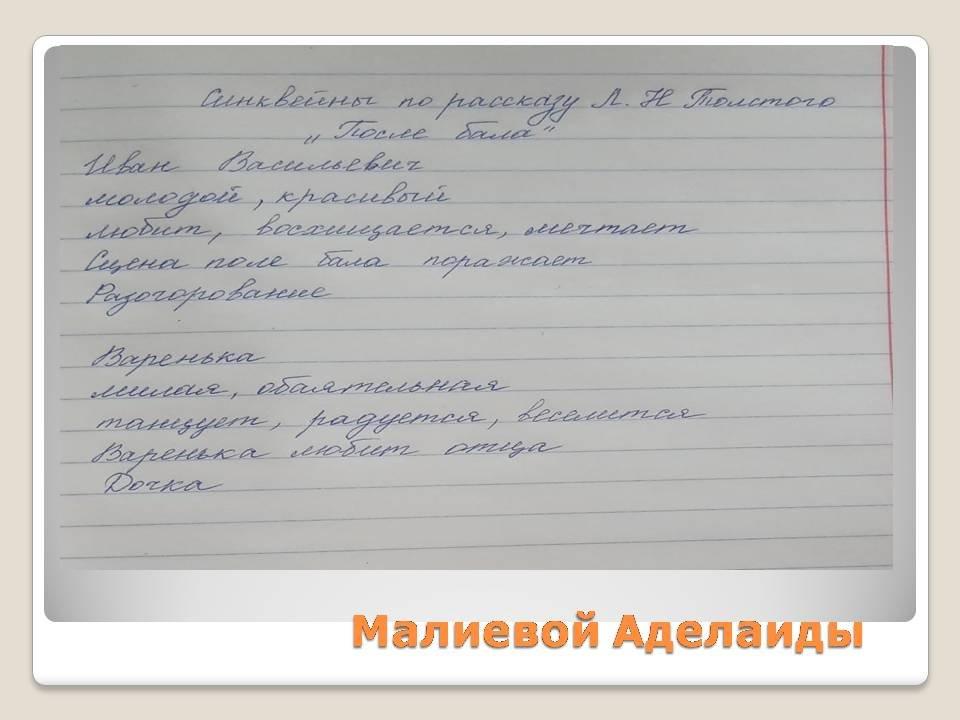 Синквейны по рассказу Л. Н Толстого
„После бала"
Иван Васильевич
молодой, красивый
любит, восхищается, мечтает
Сцена поле бала поражает
Разочорование
Варенька
милая, обаятельная
танцует, радуется, веселится
Варенька любит отца
Дочка
Малиевой Аделаиды